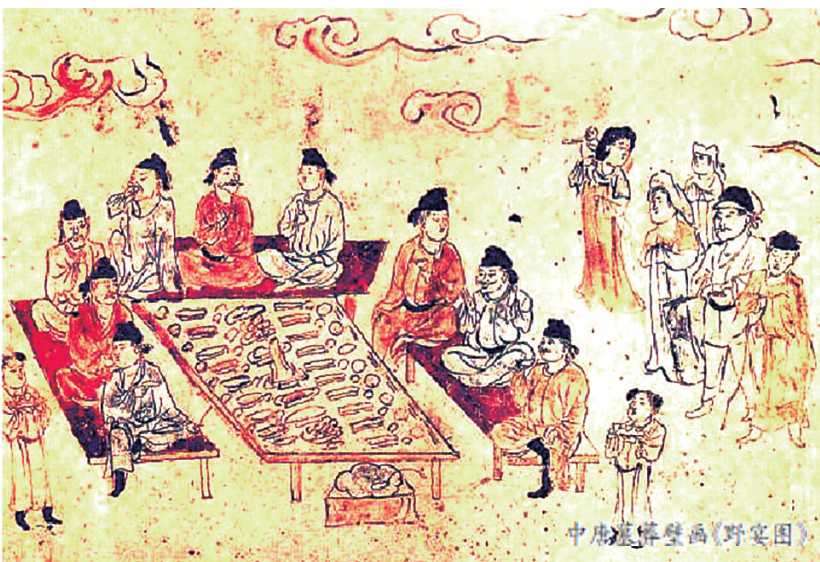 中唐墓葬壁画《野宴图》